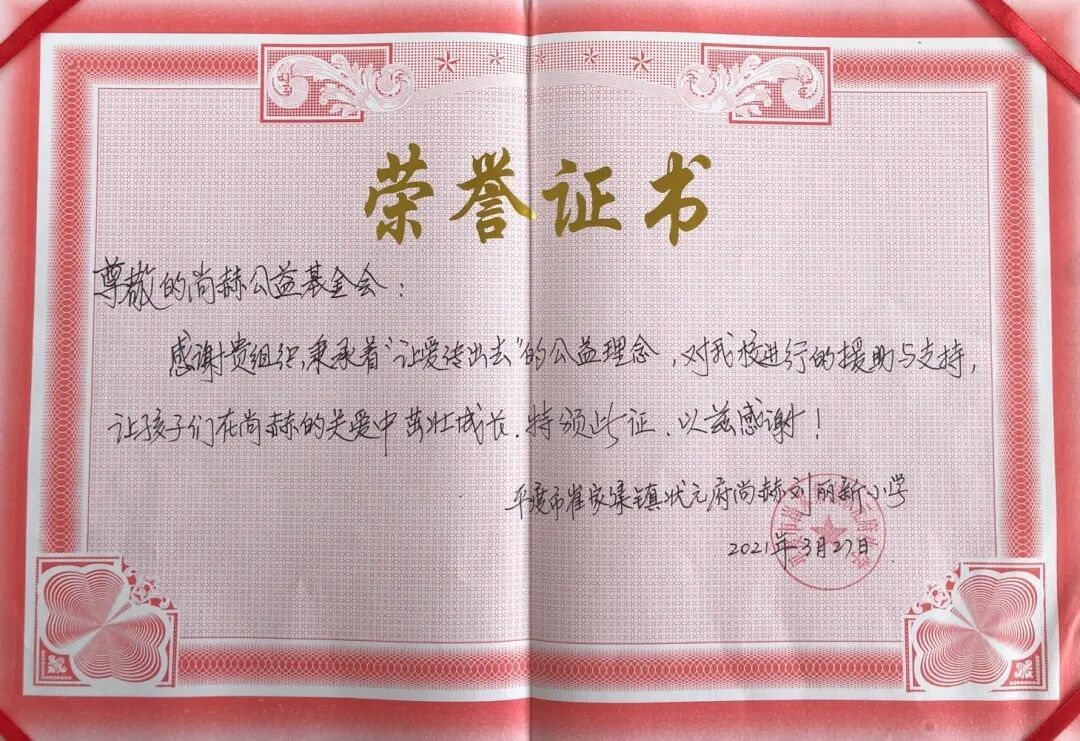 荣誉证书
尊敬的尚赫公益基金会：
感谢贵组织，秉承着“让爱传出去”的公益理念，对我校进行的援助与支持，
让孩子们在尚赫的关爱中茁壮成长。特颁此证，以兹感谢！
平度市崔家集镇状元府尚赫刘丽新小学
2021年3月27日